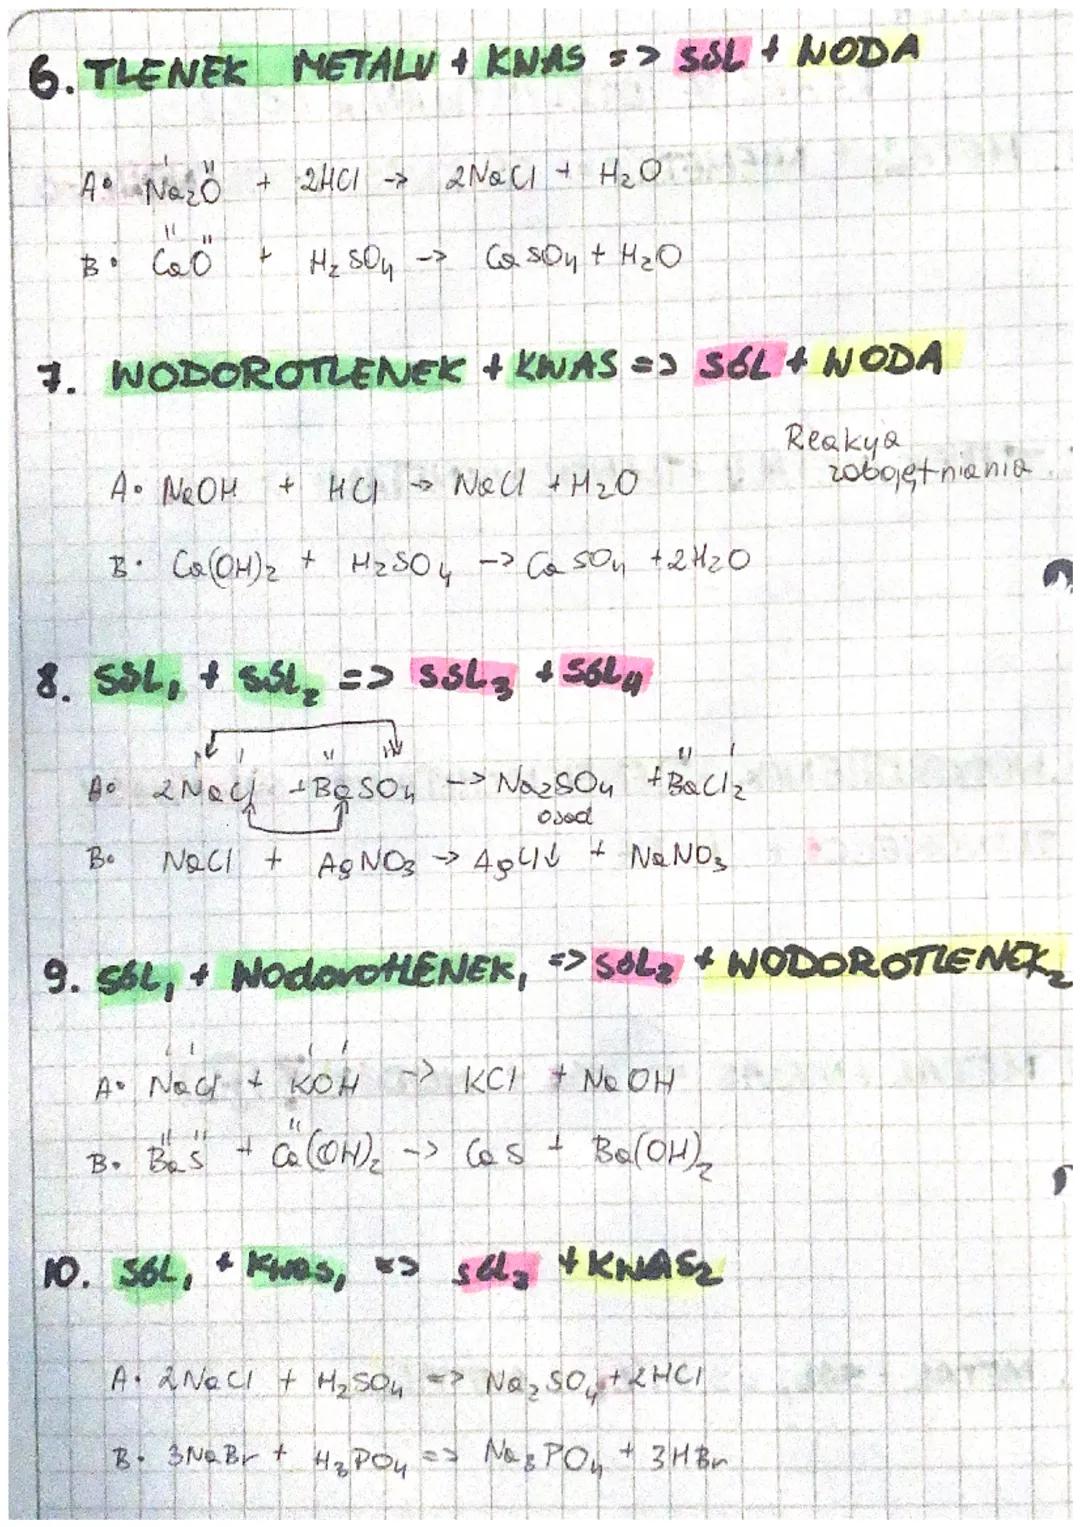 6. TLENEK METALU + KWAS => SÓL + WODA
A• Na₂O + 2HCl -> 2NaCl + H₂O
B• CaO + H₂SO₄ -> CaSO₄ + H₂O
7. WODOROTLENEK + KWAS => SÓL + WODA
Reakcja
zobojętniania
A• NaOH + HCl -> NaCl + H₂O
B• Ca(OH)₂ + H₂SO₄ -> CaSO₄ + 2H₂O
8. SÓL₁ + SÓL₂ => SÓL₃ + SÓL₄
A• 2NaCl + BaSO₄ -> Na₂SO₄ + BaCl₂
osad
B• NaCl + AgNO₃ -> AgCl↓ + NaNO₃
9. SÓL₁ + WodorotlENEK₁ => SÓL₂ + WODOROTLENEK₂
A• NaCl + KOH -> KCl + NaOH
B• BaS + Ca(OH)₂ -> CaS + Ba(OH)₂
10. SÓL₁ + Kwas₁ => SÓL₂ + KWAS₂
A• 2NaCl + H₂SO₄ => Na₂SO₄ + 2HCl
B• 3NaBr + H₃PO₄ => Na₃PO₄ + 3HBr